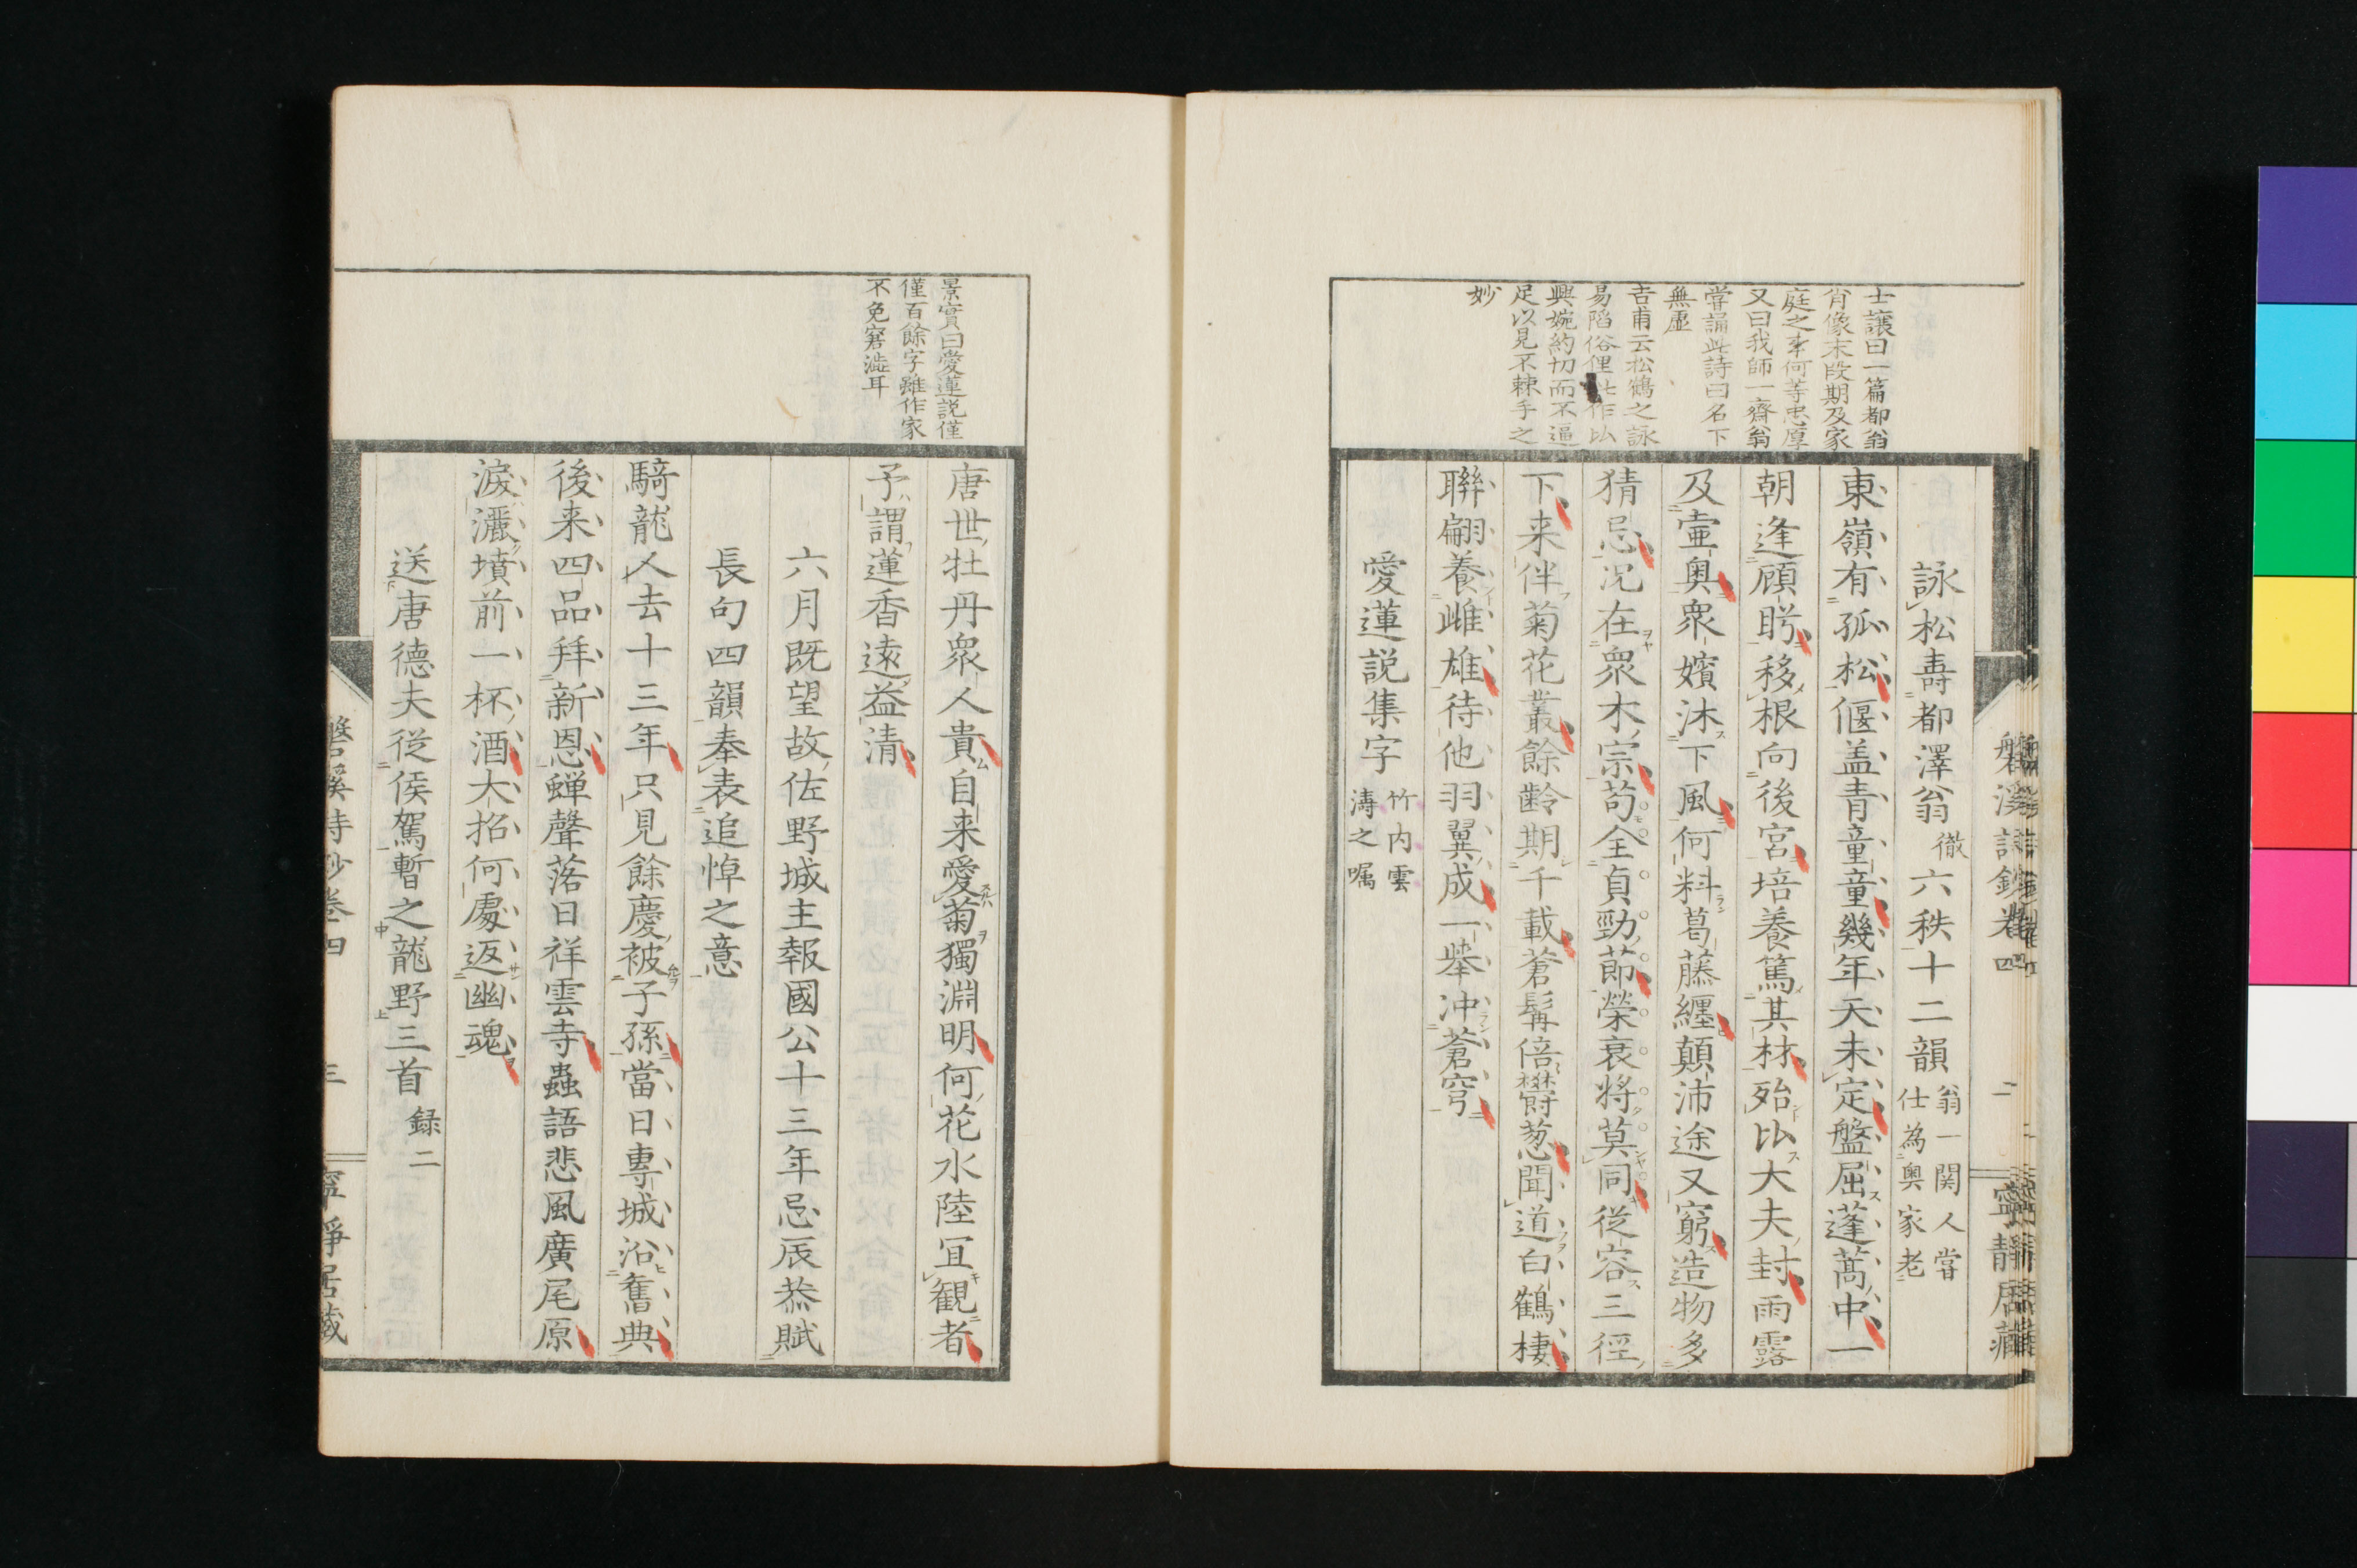 士譲曰一篇都翁
肖像末段期及家
庭之事何等忠厚
又曰我師一齋翁
嘗誦此詩曰名下
無虛
吉甫云松鶴之詠
易陷俗俚此作比
興婉約切而不逼
足以見不棘手之
妙
詠松壽都澤翁徹六秩十二韻翁一関人嘗
仕為輿家老
東嶺有孤松偃盖青童童幾年天未定盤屈蓬蒿中一
朝逢顧眄移根向後宮培養篤其材殆比大夫封雨露
及壷奥衆嬪沐下風何料葛藤纏顛沛途又窮造物多
猜忌况在衆木宗苟全貞勁莭榮衰將莫同從容三徑
下来伴菊花叢餘齡期千載蒼髯倍欝葱聞道白鶴棲
聯翩養雌雄待他羽翼成一舉冲蒼穹
愛蓮説集字竹内雲
濤之嘱
景實曰愛蓮説僅
僅百餘字雖作家
不免窘澁耳
唐世牡丹衆人貴自来愛菊獨淵明何花水陸宜観者
予謂蓮香遠益清
六月既望故佐野城主報國公十三年忌辰恭賦
長句四韻奉表追悼之意
騎龍人去十三年只見餘慶被子孫當日專城沿舊典
後来四品拜新恩蝉聲落日祥雲寺蟲語悲風廣尾原
淚灑墳前一杯酒大招何處返幽魂
送唐德夫從侯駕暫之龍野三首録二
磐溪詩鈔卷四
三
寧静居藏